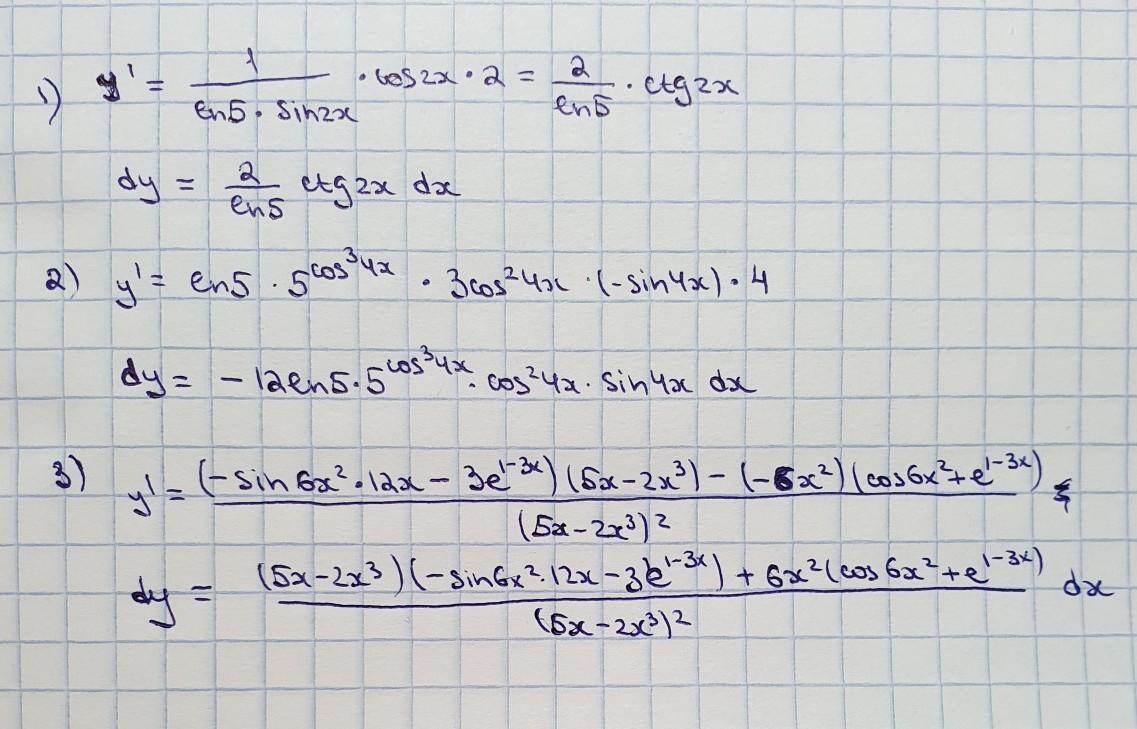 1) y' = 1/(ln5 · sin2x) · cos2x · 2 = 2/ln5 · ctg2x
dy = 2/ln5 ctg2x dx
2) y' = ln5 · 5^(cos³4x) · 3cos²4x · (-sin4x) · 4
dy = -12ln5 · 5^(cos³4x) · cos²4x · sin4x dx
3) y' = ((-sin6x² · 12x - 3e^(1-3x))(5x-2x³) - (-6x²)(cos6x²+e^(1-3x)))/(5x-2x³)²
dy = ((5x-2x³)(-sin6x² · 12x - 3e^(1-3x)) + 6x²(cos6x²+e^(1-3x)))/(5x-2x³)² dx